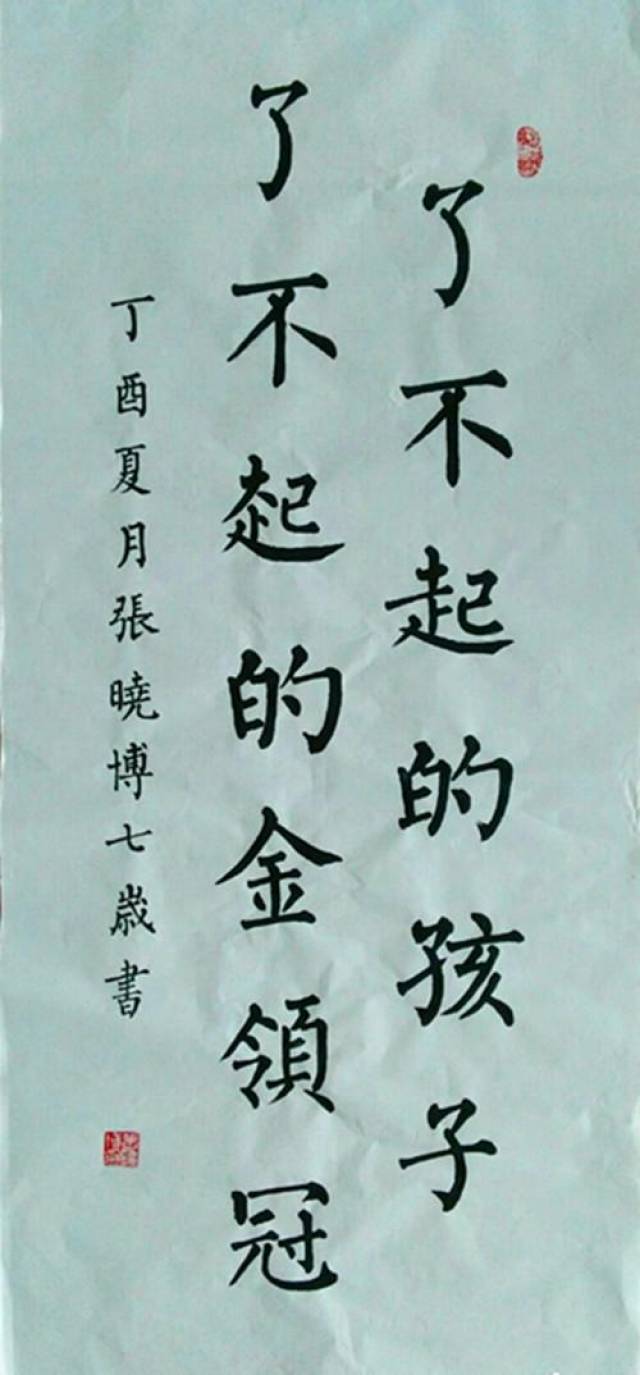 了不起的孩子
了不起的金領冠
丁酉夏月張曉博七歲書